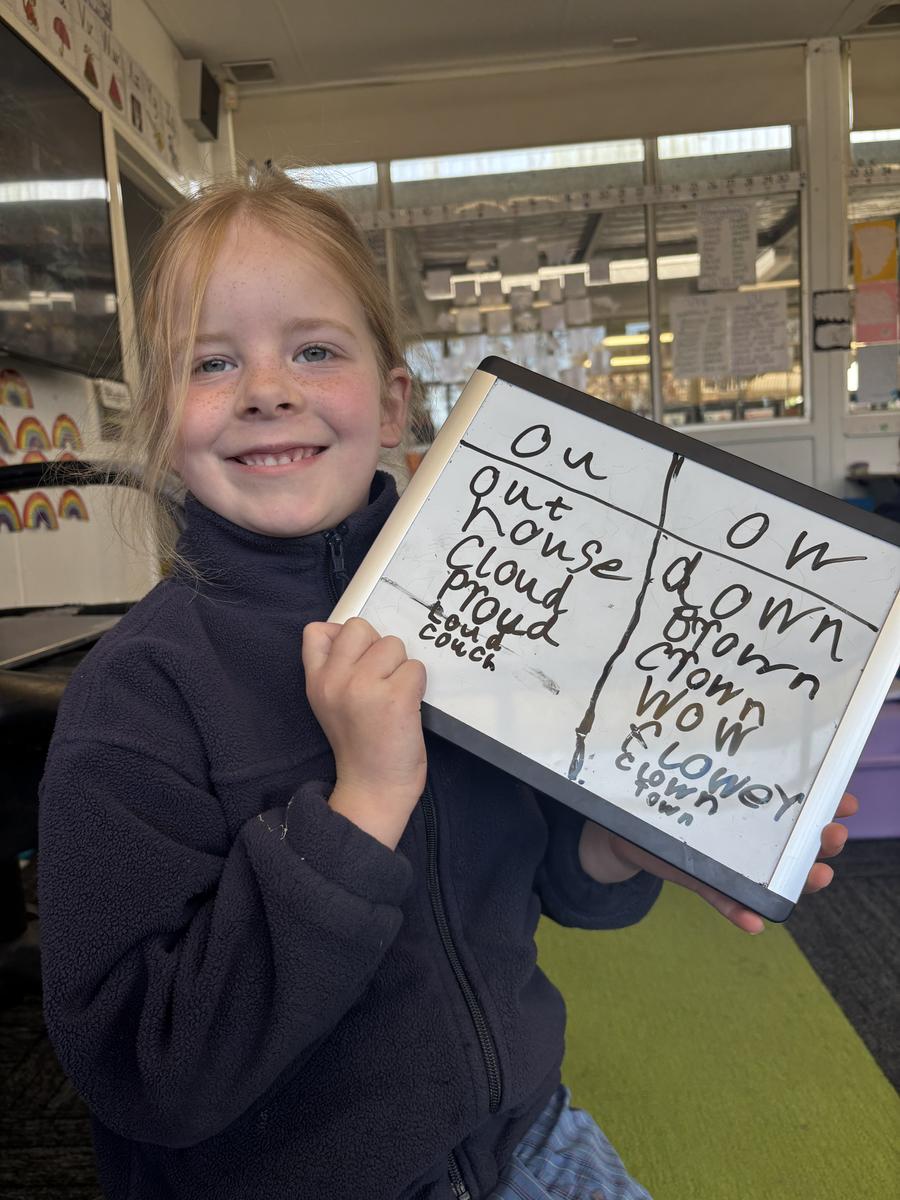 ou
out
house
cloud
proud
loud
couch
ow
down
brown
crown
wow
flowey
clown
town